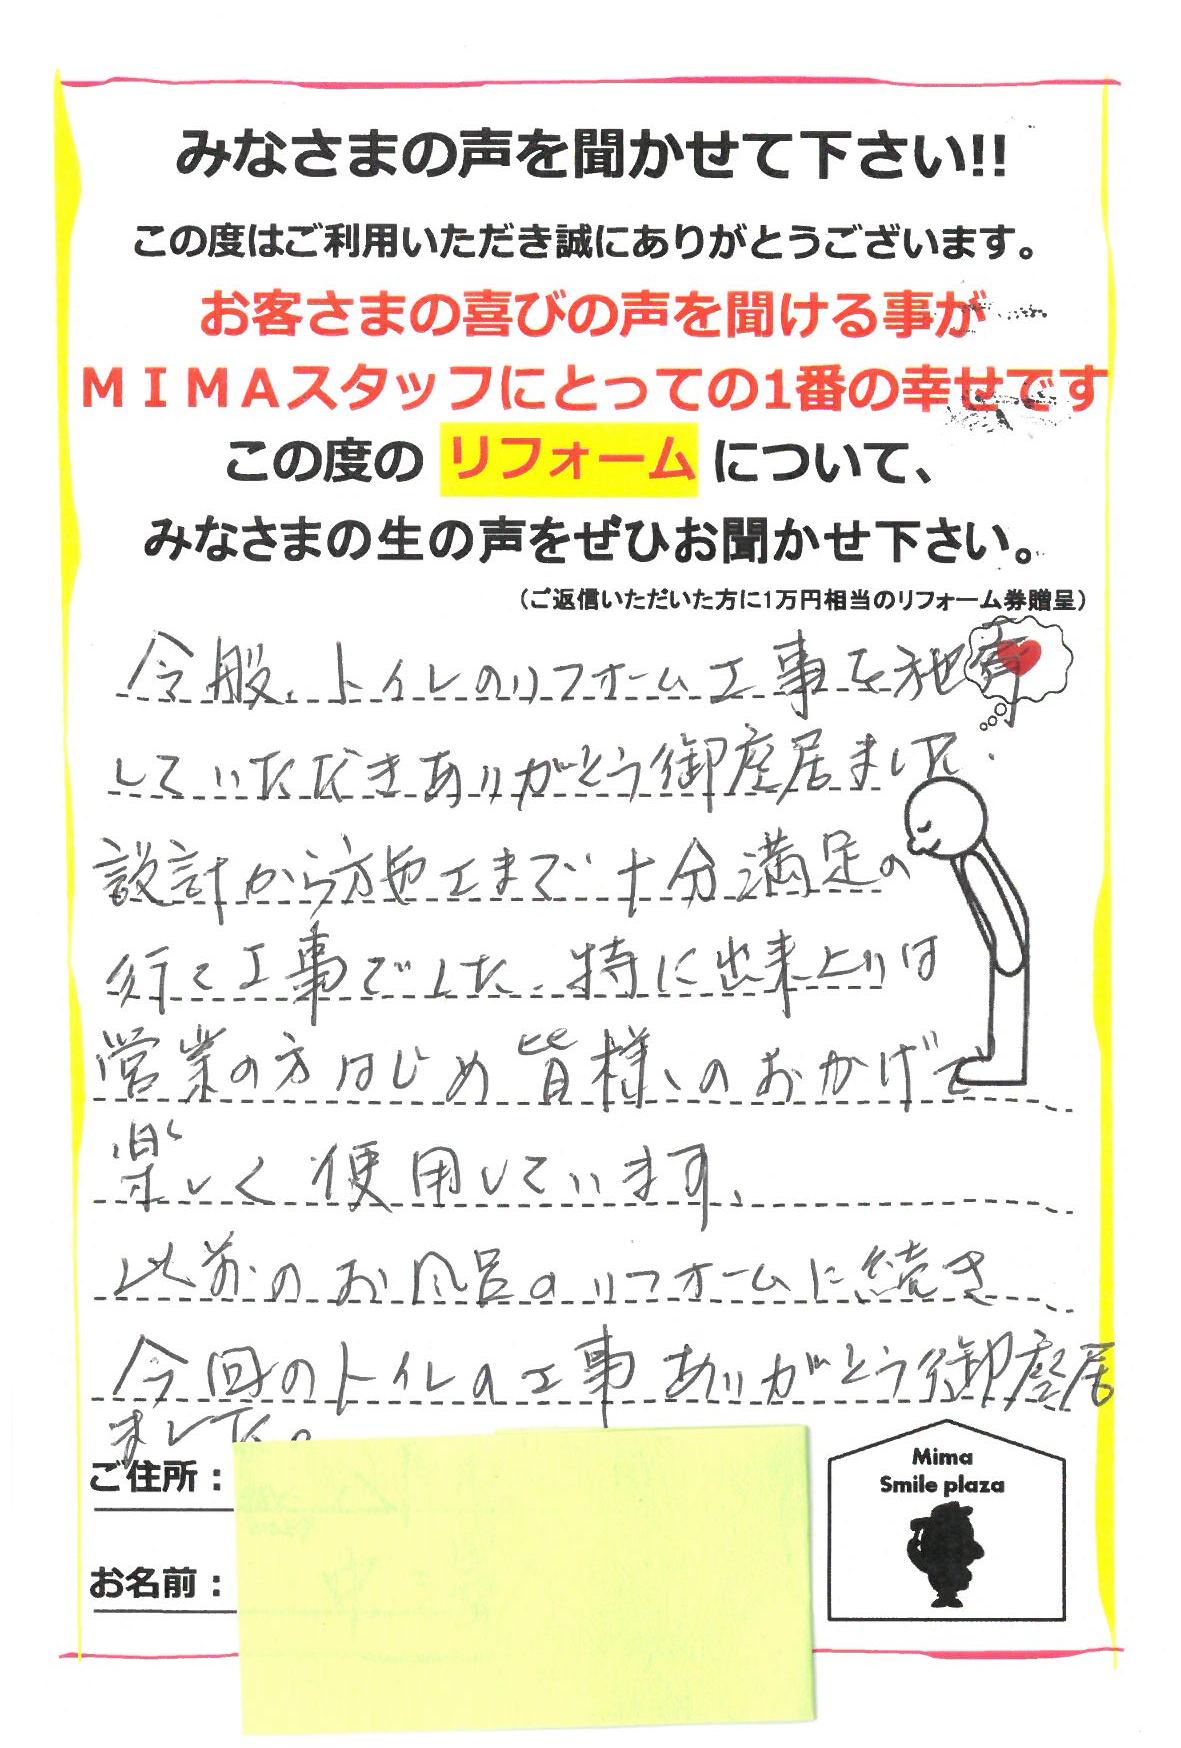 みなさまの声を聞かせて下さい!!
この度はご利用いただき誠にありがとうございます。
お客さまの喜びの声を聞ける事が
ＭＩＭＡスタッフにとっての1番の幸せです
この度の リフォーム について、
みなさまの生の声をぜひお聞かせ下さい。
（ご返信いただいた方に1万円相当のリフォーム券贈呈）
今般、トイレのリフォーム工事を施
していただきありがとう御座居ました.
設計から施工まで十分満足の
行く工事でした。特に出来上りは
営業の方はじめ皆様のおかげで
楽しく使用しています、
以前のお風呂のリフォームに続き
今回のトイレの工事ありがとう御座居
ました。
ご住所：
お名前：
Mima
Smile plaza